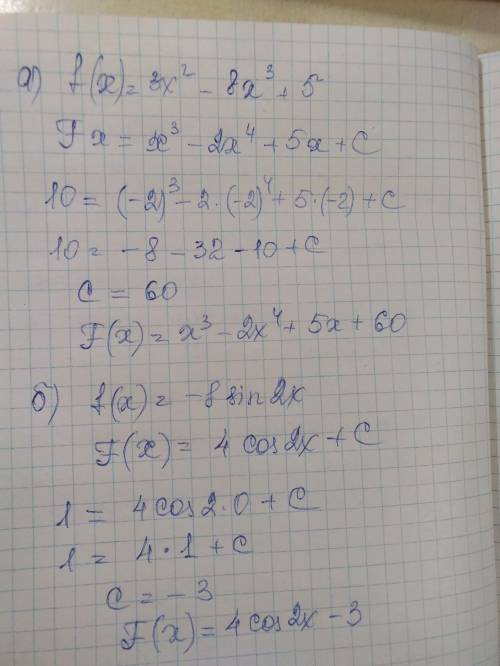 а) f(x) = 3x² - 8x³ + 5
Fx = x³ - 2x⁴ + 5x + C
10 = (-2)³ - 2·(-2)⁴ + 5·(-2) + C
10 = -8 - 32 - 10 + C
C = 60
F(x) = x³ - 2x⁴ + 5x + 60
б) f(x) = -8 sin 2x
F(x) = 4 cos 2x + C
1 = 4 cos 2·0 + C
1 = 4·1 + C
C = -3
F(x) = 4 cos 2x - 3